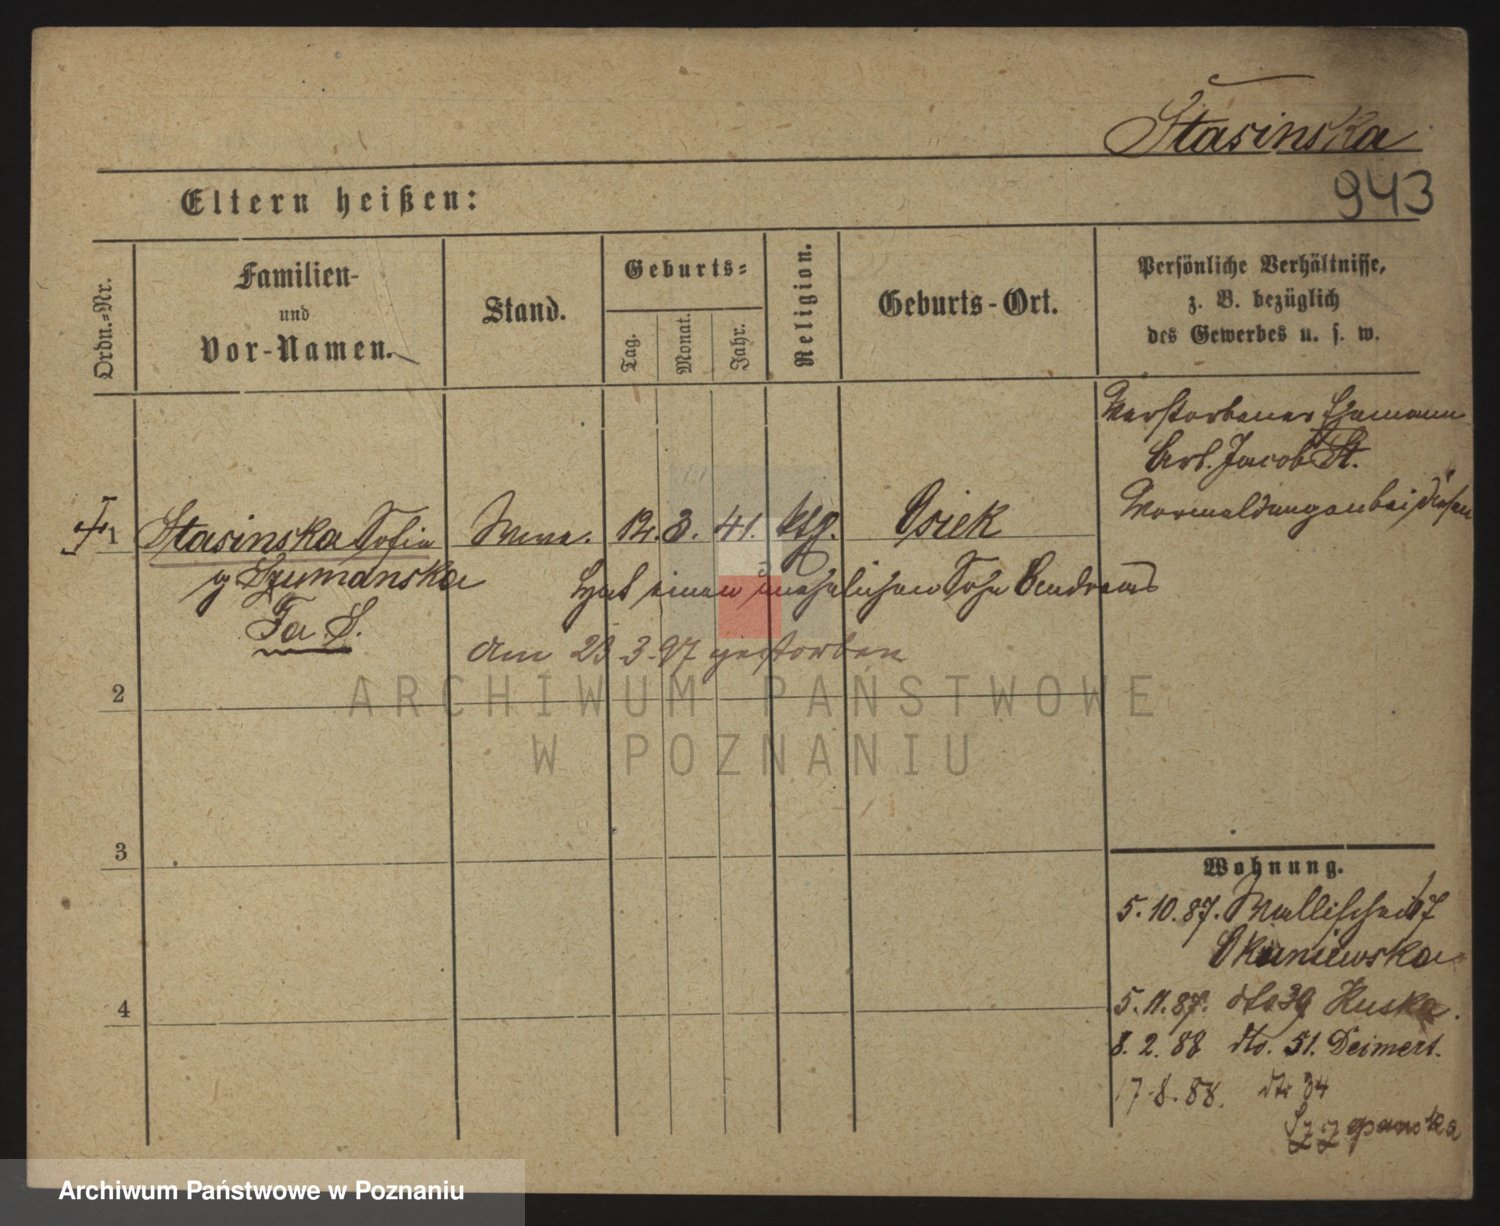 Stasinska
943
Eltern heißen:
Ordn.=Nr.
Familien-
und
Vor-Namen.
Stand.
Geburts=
Tag.
Monat.
Jahr.
Religion.
Geburts-Ort.
Persönliche Verhältnisse,
z. B. bezüglich
des Gewerbes u. s. w.
Verstorbener Ehemann
Arb. Jacob St.
Vormeldungen bei diesem
1 Stasinska Sofia Wwe. 12. 3. 41. ktg. Osiek
g Szymanska Hat einen unehelichen Sohn Andreas
Fa. S.
am 23-3-97 gestorben
2
ARCHIWUM PAŃSTWOWE
W POZNANIU
3
Wohnung.
5.10.87. Wallischei 67
Okuniewska
4
5.11.87. dto 39 Kuska.
8.2.88 dto. 51. Deimert.
17.8.88. dto 34
Szzepanska
Archiwum Państwowe w Poznaniu